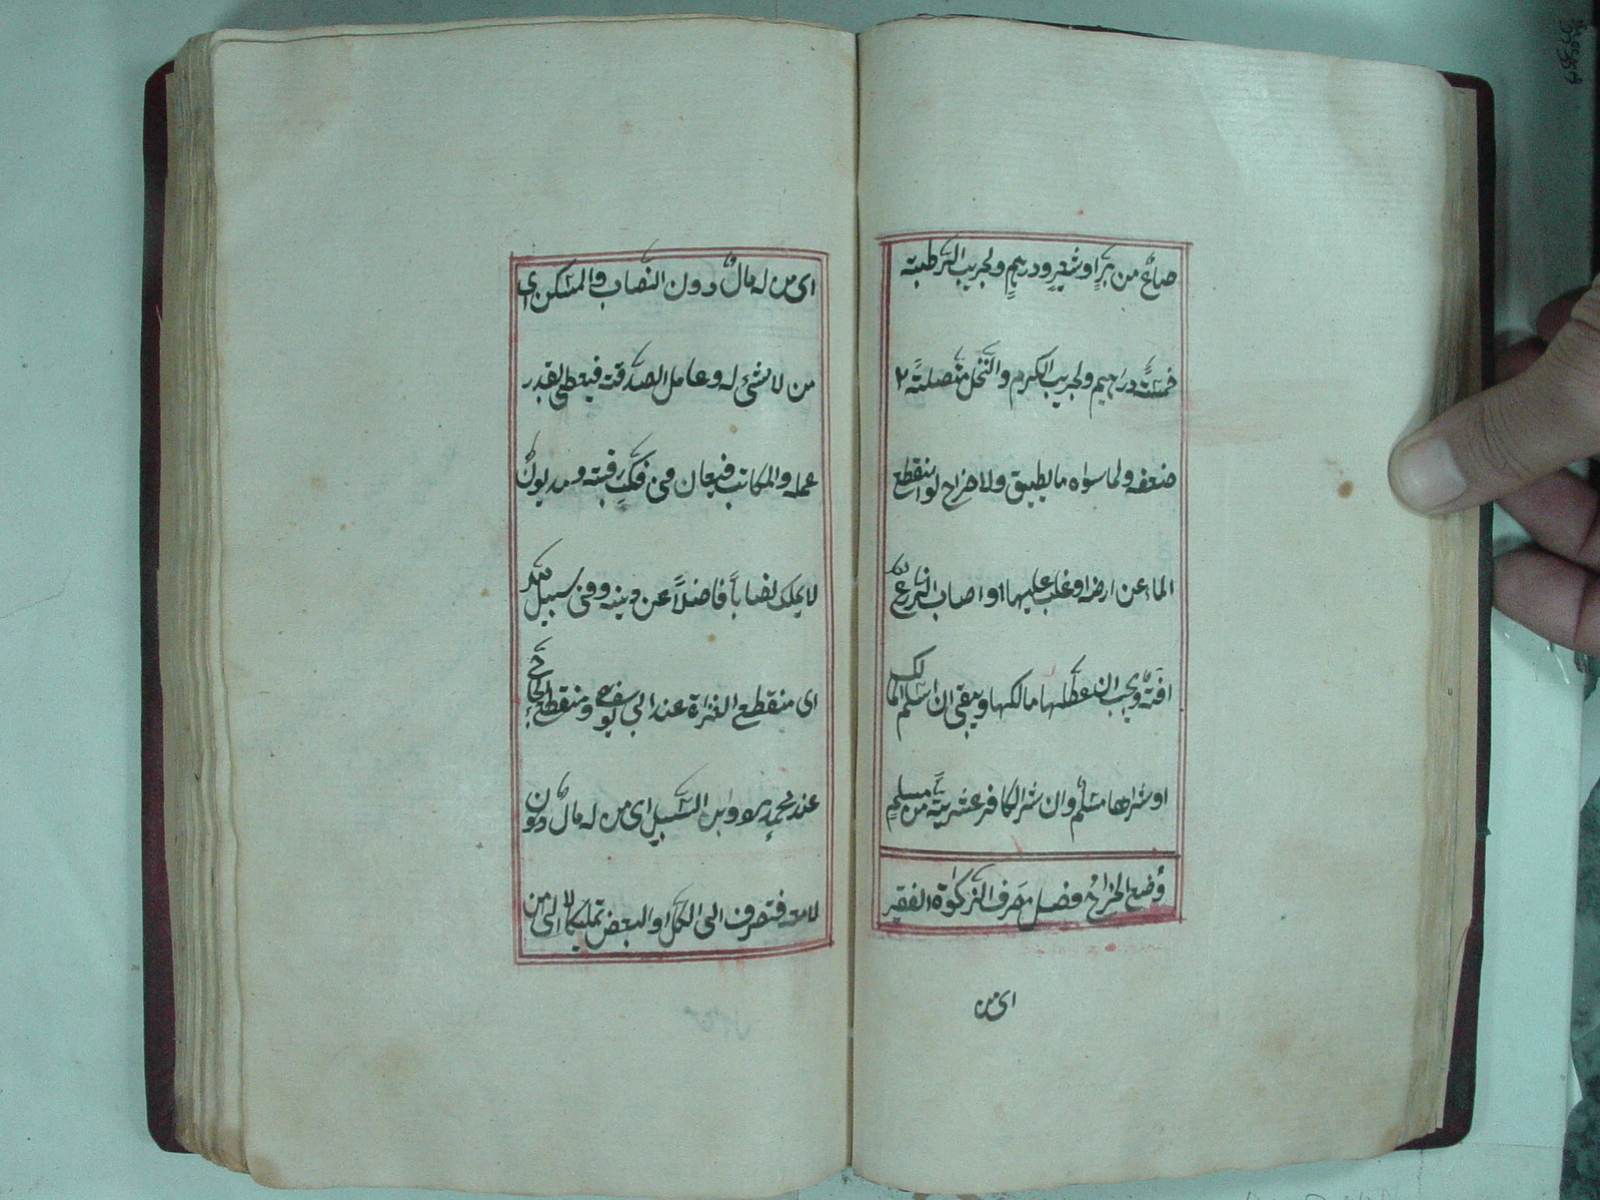 صاعٌ من برٍّ او شعيرٍ ودرهمٍ ولجريب الرَّطبة
خمسَةُ دراهيم ولجريب الكرم والنَّخل متَّصلةً ٢
ضعفه ولما سواه ما يطيق ولا خراج لو انقطع
الماء عن ارضه او غلب عليها او اصاب الزرعَ
افةٌ ويجب ان عطَّلها مالكها ويبقى ان اسلم المالك
او شراها مسلم وان شرا لكافر عشريةً من مسلمٍ
وُضع الخراجُ فصل مصرف الزكوٰة الفقير
اى من
اى من له مالٌ دون النصاب والمسكن اى
من لا شئ له وعامل الصدقة فيعطى بقدر
عمله والمكاتب فيعان فى فكّ رقبته ومديونٌ
لا يملك نصاباً فاضلاً عن دينه وفى سبيل الله
اى منقطع الغزاة عند ابى يوسف رح ومنقطع الحاج
عند محمدٍ رح وابن السَّبيل اى من له مالٌ دون
لا معه فتصرف الى الكل او البعض تمليكاً لا الى من